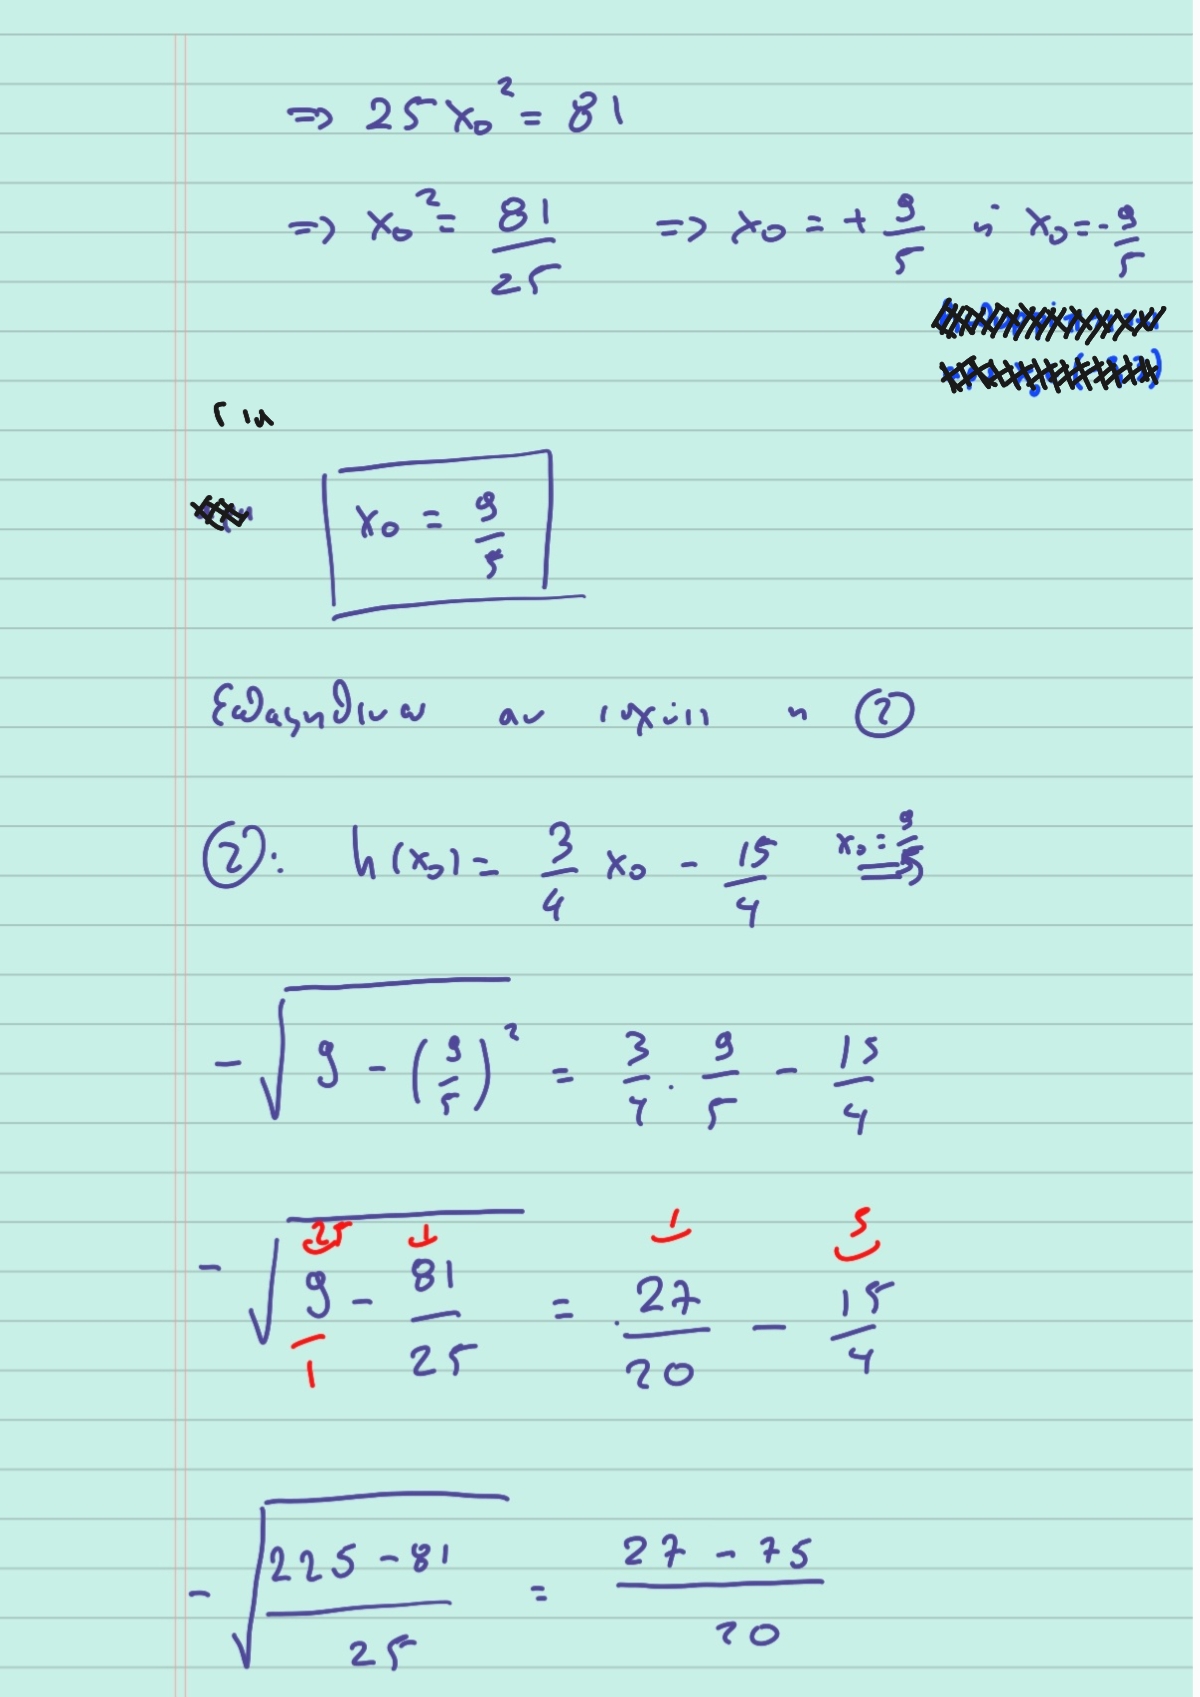 ⇒ 25x₀² = 81
⇒ x₀² = 81/25 ⇒ x₀ = + 9/5 ή x₀ = - 9/5
Για
x₀ = 9/5
Επαληθεύω αν ισχύει η ②
②: h(x₀) = 3/4 x₀ - 15/4 x₀ = 9/5 ⇒
- √(9 - (9/5)²) = 3/4 · 9/5 - 15/4
- √(9/1 - 81/25) = 27/20 - 15/4
25 1 1 5
- √((225 - 81)/25) = (27 - 75)/20